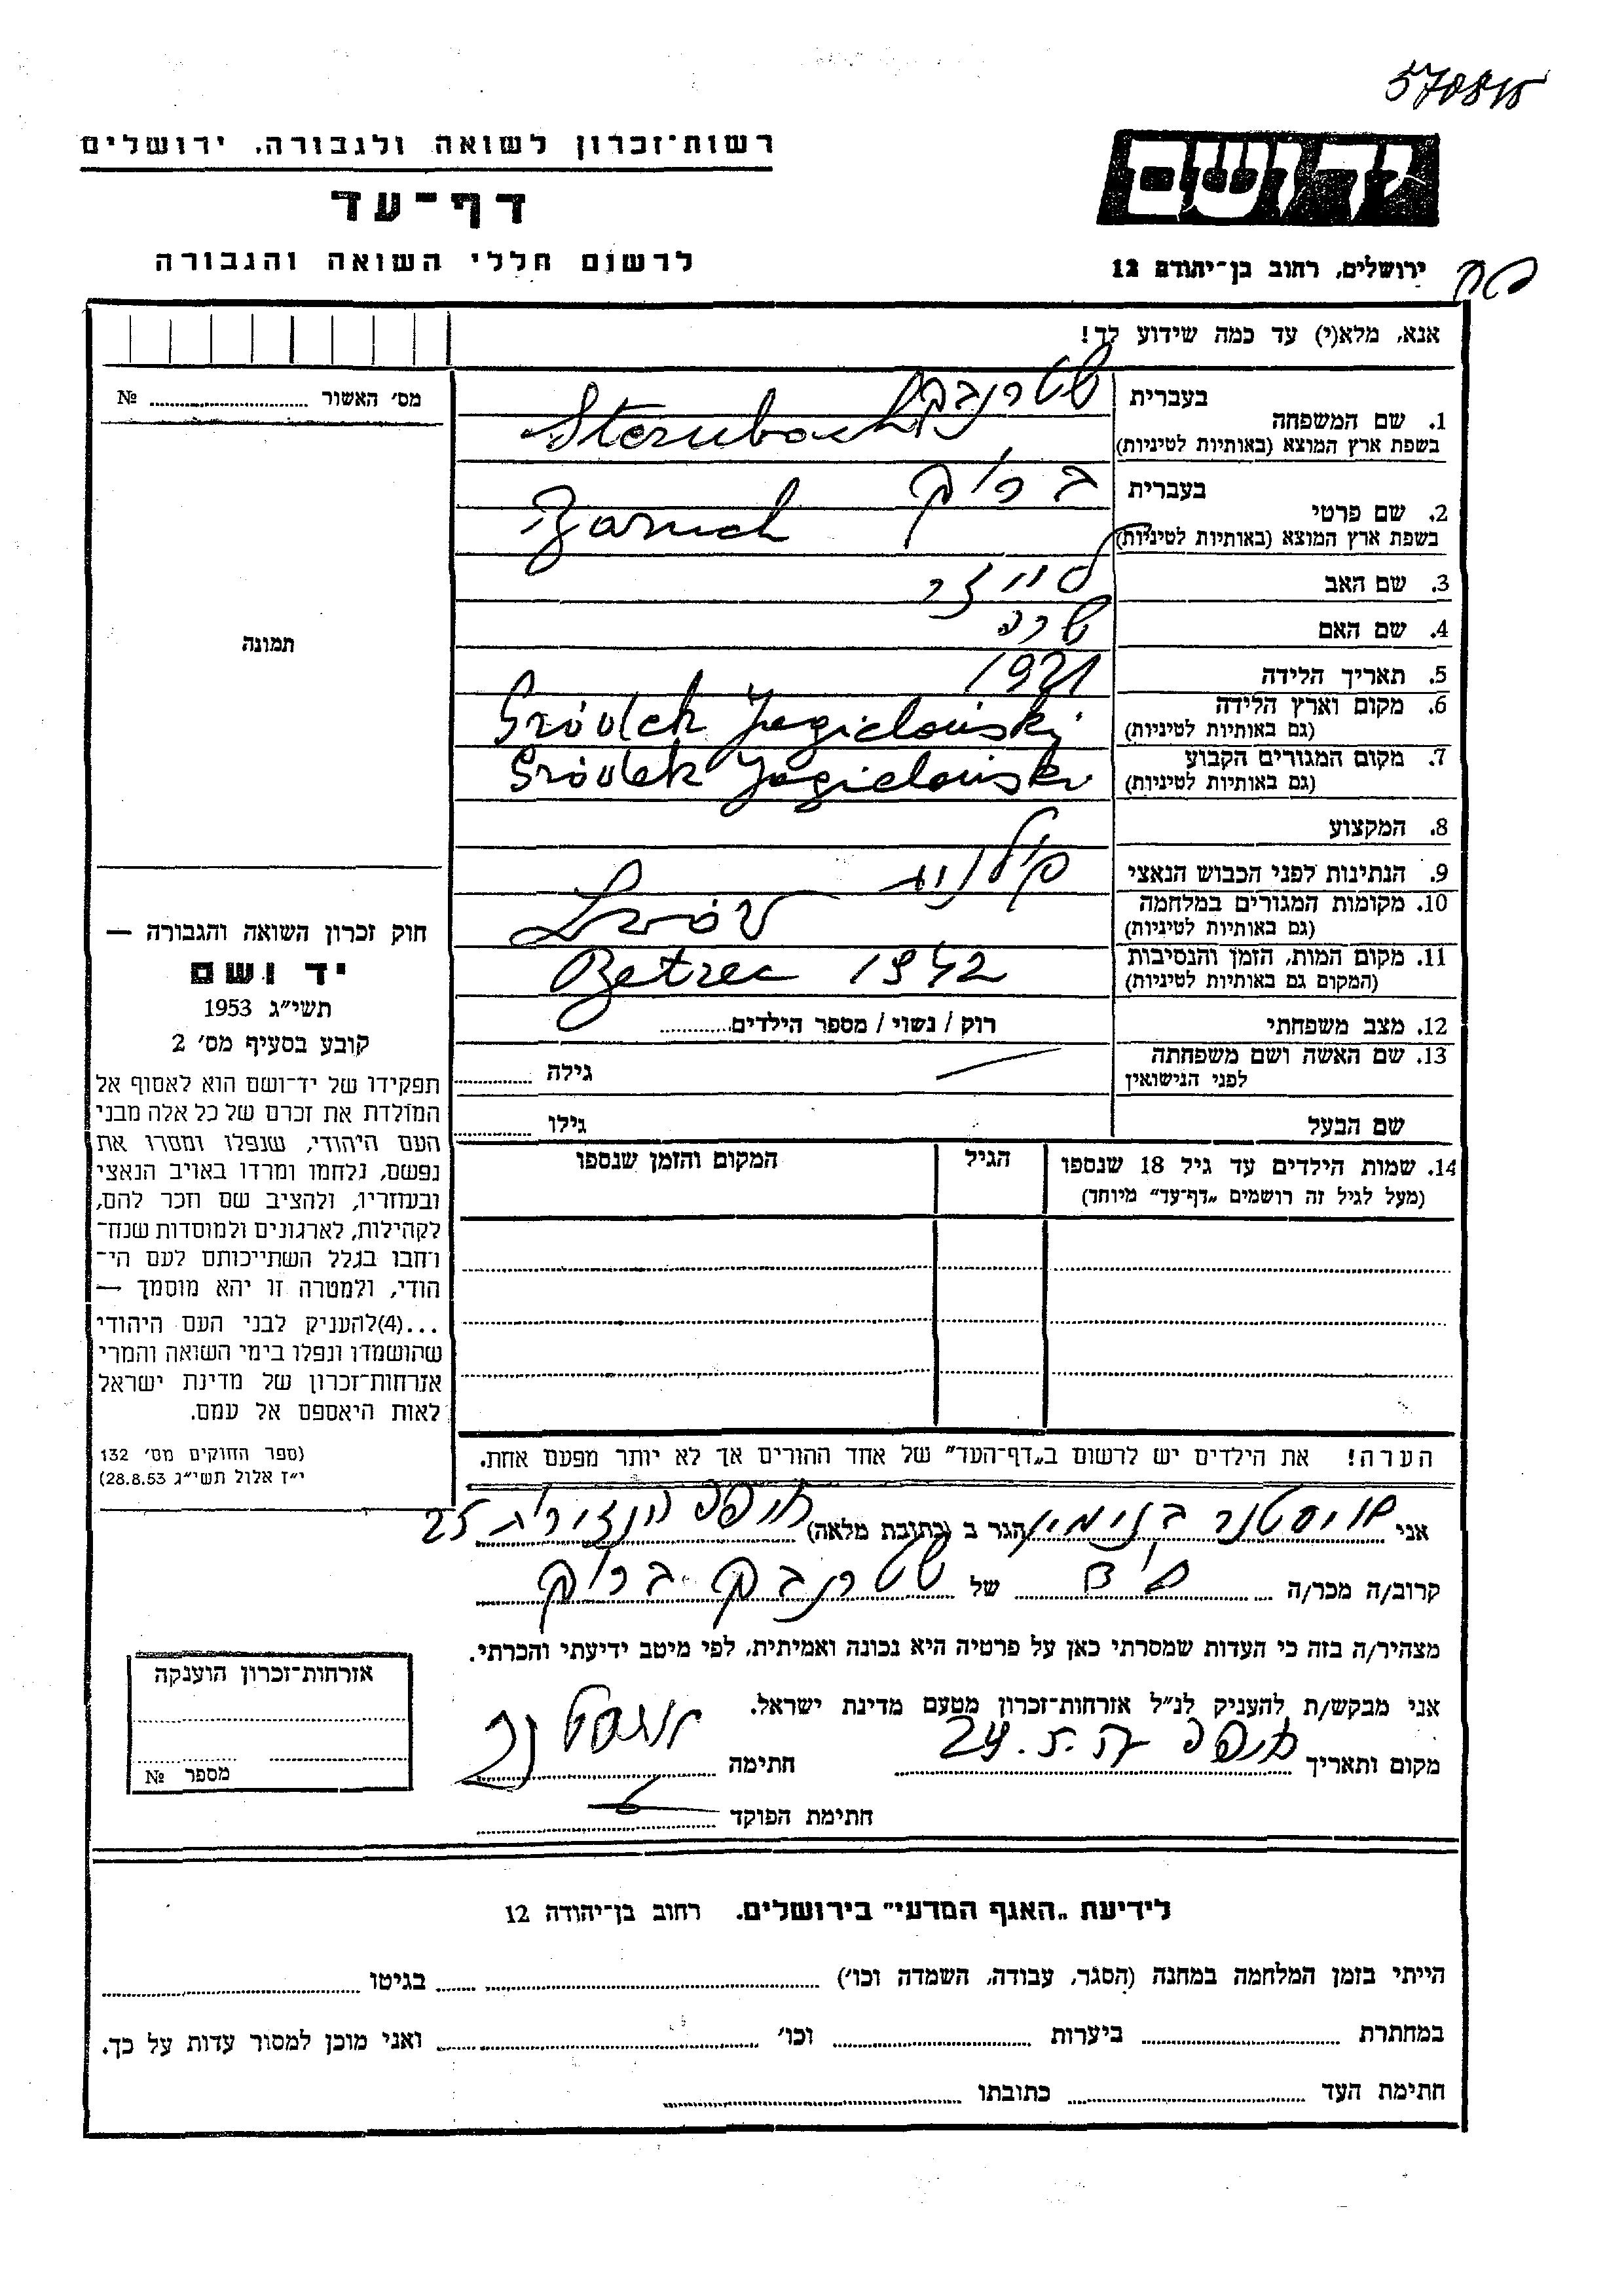 570815
רשות־זכרון לשואה ולגבורה. ירושלים
דף־עד
לרשום חללי השואה והגבורה
ידושם
ירושלים, רחוב בן־יהודה 12
אנא, מלא(י) עד כמה שידוע לך!
מס׳ האשור № ..........
תמונה
1. שם המשפחה
בעברית שטרנבך
בשפת ארץ המוצא (באותיות לטיניות) Sternbach
2. שם פרטי
בעברית ברוך
בשפת ארץ המוצא (באותיות לטיניות) Baruch
3. שם האב
4. שם האם שרה
5. תאריך הלידה 1921
6. מקום וארץ הלידה
(גם באותיות לטיניות) Gródek Jagieloński
7. מקום המגורים הקבוע
(גם באותיות לטיניות) Gródek Jagieloński
8. המקצוע
9. הנתינות לפני הכבוש הנאצי פולנית
10. מקומות המגורים במלחמה
(גם באותיות לטיניות) Lwów
11. מקום המות, הזמן והנסיבות
(המקום גם באותיות לטיניות) Betzec 1942
12. מצב משפחתי רוק / נשוי / מספר הילדים..........
13. שם האשה ושם משפחתה
לפני הנישואין גילה ..........
שם הבעל גילו ..........
14. שמות הילדים עד גיל 18 שנספו הגיל המקום והזמן שנספו
(מעל לגיל זה רושמים „דף־עד” מיוחד)
חוק זכרון השואה והגבורה —
יד ושם
תשי״ג 1953
קובע בסעיף מס׳ 2
תפקידו של יד־ושם הוא לאסוף אל
המולדת את זכרם של כל אלה מבני
העם היהודי, שנפלו ומסרו את
נפשם, נלחמו ומרדו באויב הנאצי
ובעוזריו, ולהציב שם וזכר להם,
לקהילות, לארגונים ולמוסדות שנח־
רבו בגלל השתייכותם לעם הי־
הודי, ולמטרה זו יהא מוסמך —
...(4)להעניק לבני העם היהודי
שהושמדו ונפלו בימי השואה והמרי
אזרחות־זכרון של מדינת ישראל
לאות היאספם אל עמם.
(ספר החוקים מס׳ 132
י״ז אלול תשי״ג 28.8.53)
הערה! את הילדים יש לרשום ב„דף־העד” של אחד ההורים אך לא יותר מפעם אחת.
אני בנימין הגר ב (כתובת מלאה) חיפה 25
קרוב/ה מכר/ה של שטרנבך ברוך
מצהיר/ה בזה כי העדות שמסרתי כאן על פרטיה היא נכונה ואמיתית, לפי מיטב ידיעתי והכרתי.
אני מבקש/ת להעניק לנ״ל אזרחות־זכרון מטעם מדינת ישראל.
מקום ותאריך חיפה 24.5.57 חתימה
חתימת הפוקד
אזרחות־זכרון הוענקה
מספר №
לידיעת „האגף המדעי” בירושלים. רחוב בן־יהודה 12
הייתי בזמן המלחמה במחנה (הסגר, עבודה, השמדה וכו׳) .......... בגיטו ..........
במחתרת .......... ביערות .......... וכו׳ .......... ואני מוכן למסור עדות על כך.
חתימת העד .......... כתובתו ..........